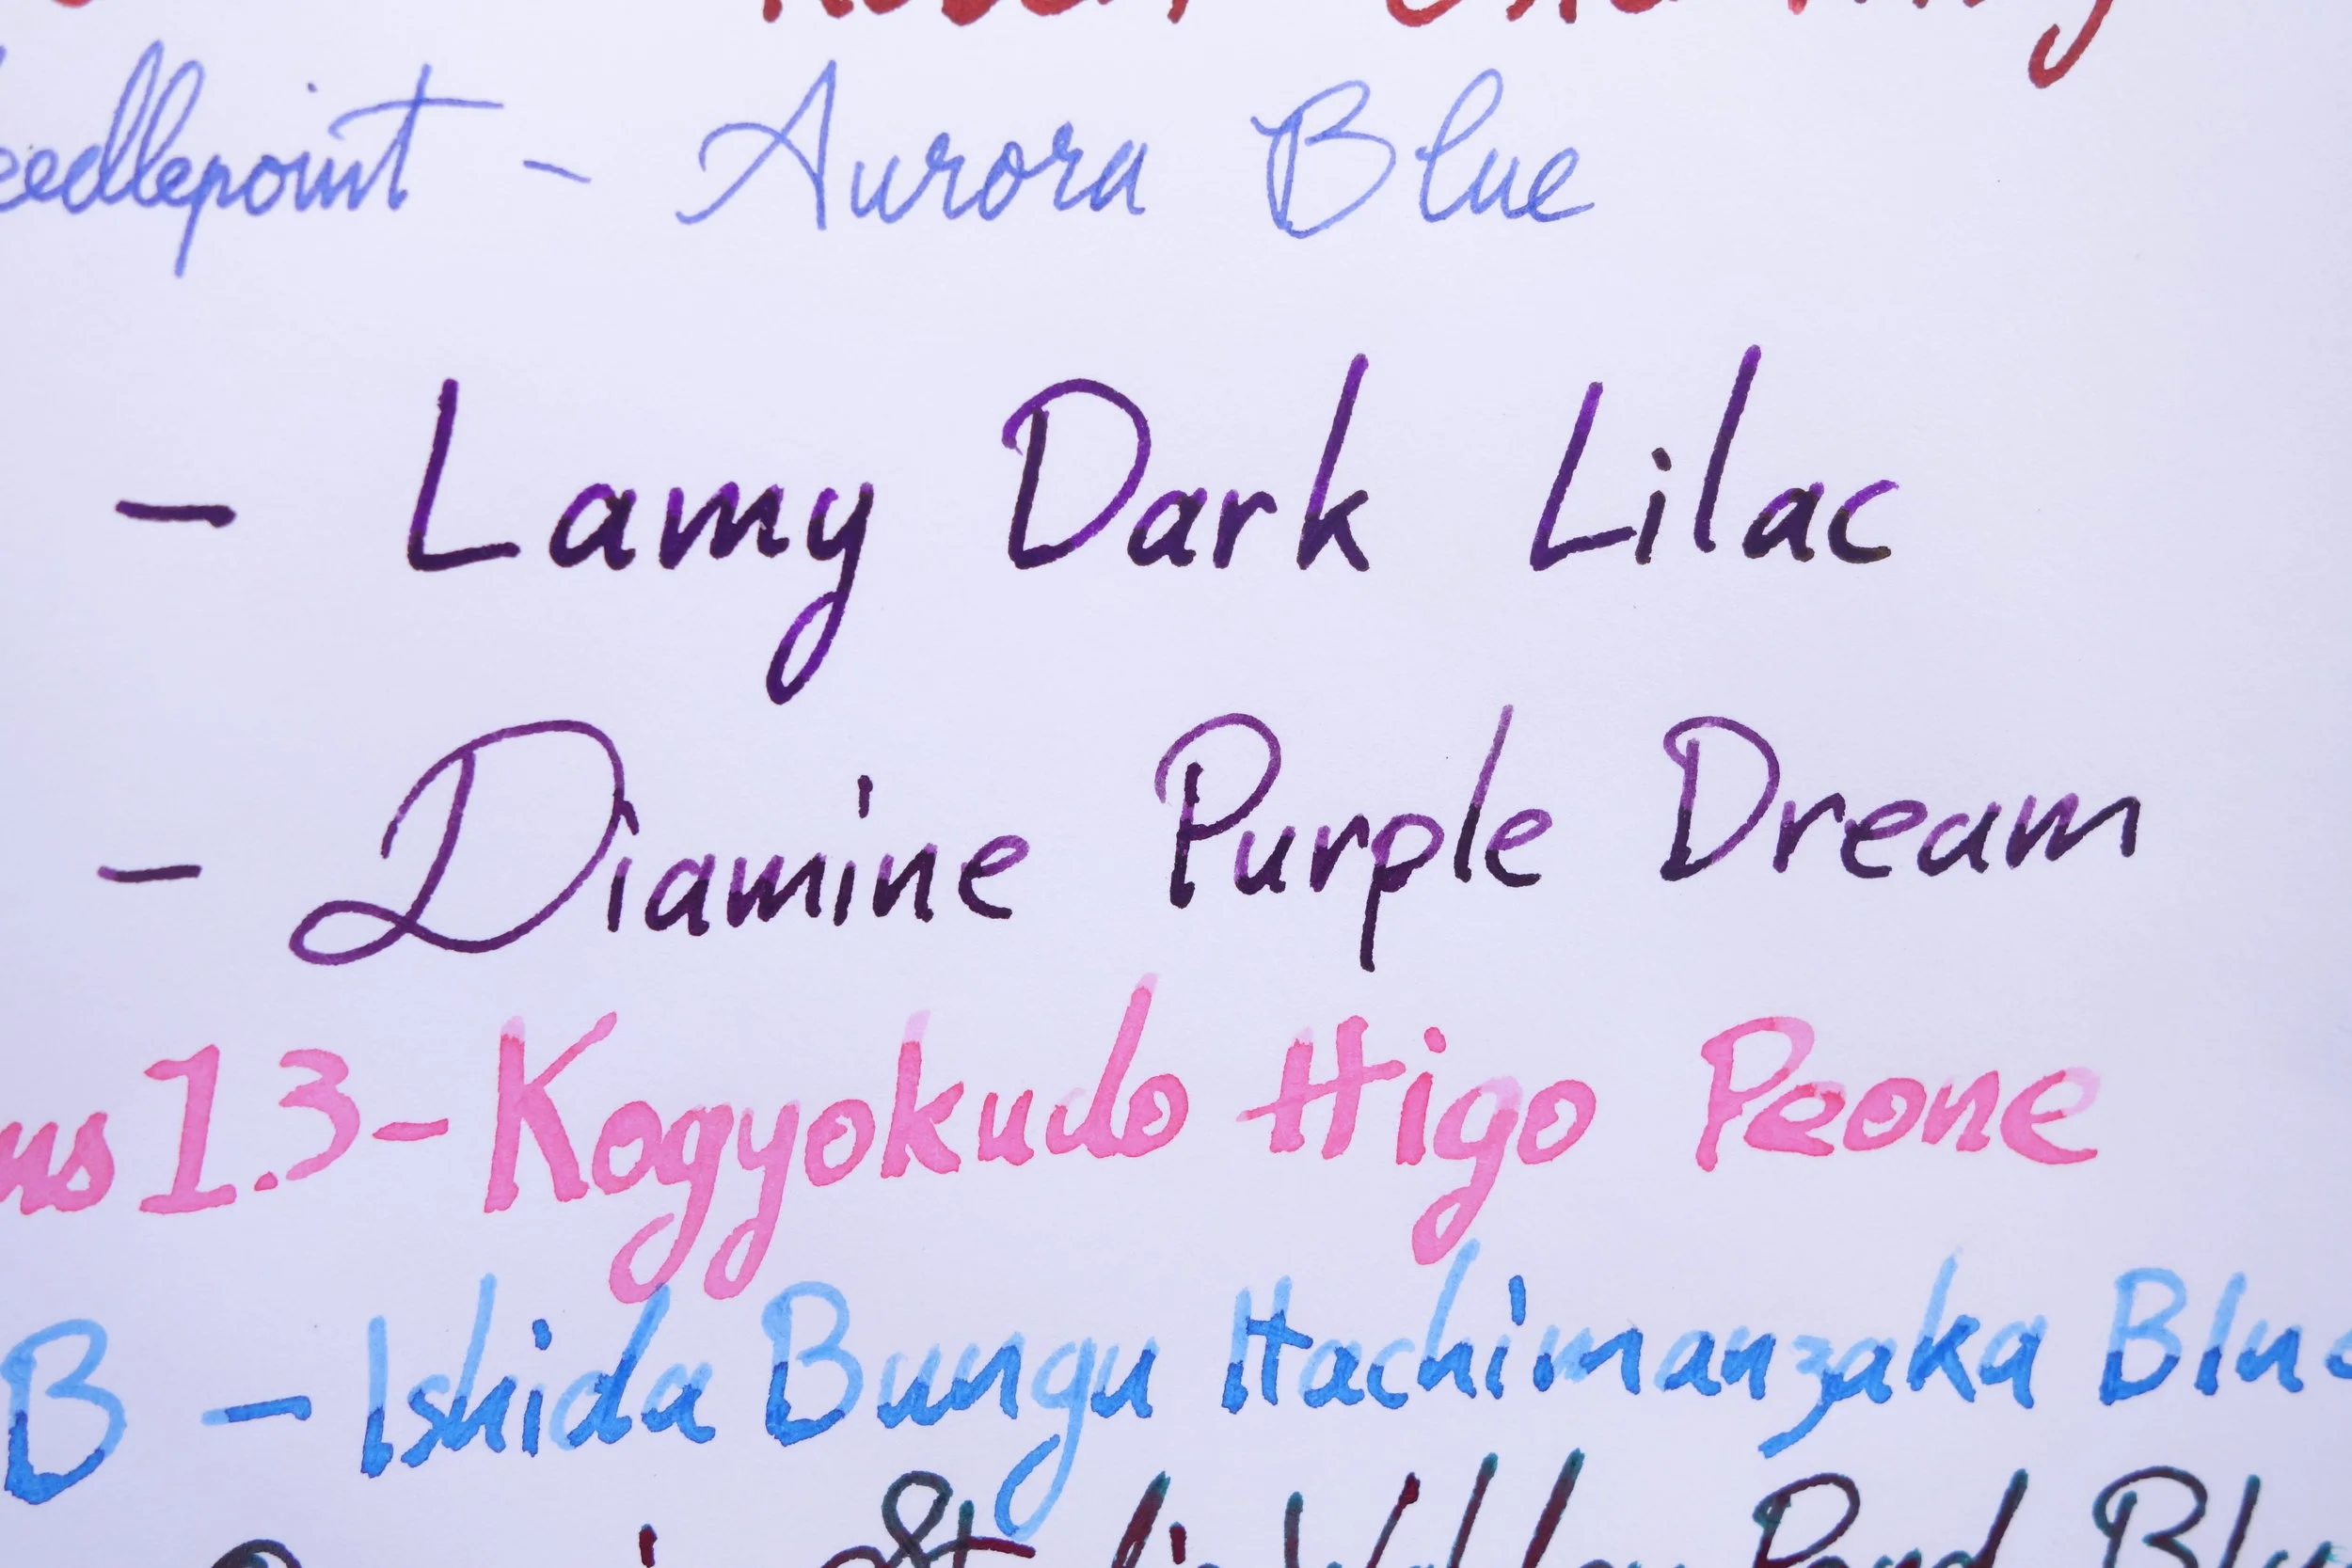 eedlepoint - Aurora Blue
- Lamy Dark Lilac
- Diamine Purple Dream
us 1.3 - Kogyokudo Higo Peone
B - Ishida Bungu Hachimanzaka Blue
Walden Pond Blu